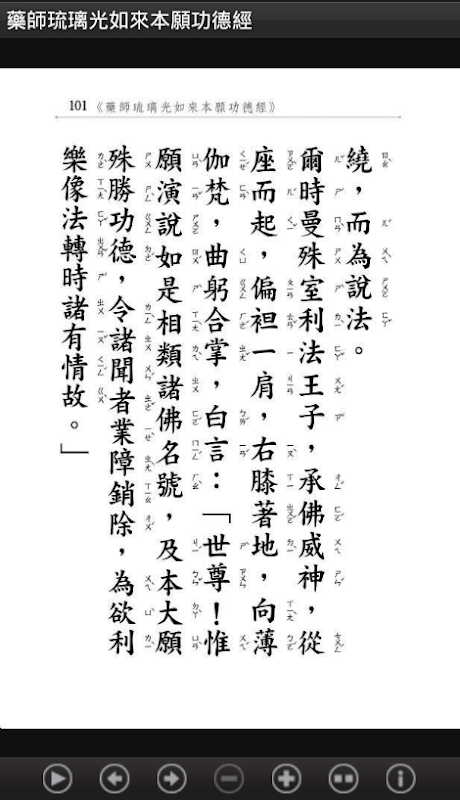 藥師琉璃光如來本願功德經
101《藥師琉璃光如來本願功德經》
繞，而為說法。
爾時曼殊室利法王子，承佛威神，從
座而起，偏袒一肩，右膝著地，向薄
伽梵，曲躬合掌，白言：「世尊！惟
願演說如是相類諸佛名號，及本大願
殊勝功德，令諸聞者業障銷除，為欲利
樂像法轉時諸有情故。」